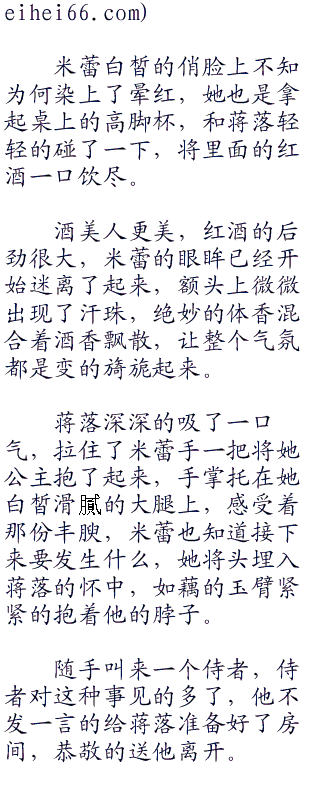 eihei66.com)
米蕾白皙的俏脸上不知
为何染上了晕红，她也是拿
起桌上的高脚杯，和蒋落轻
轻的碰了一下，将里面的红
酒一口饮尽。
酒美人更美，红酒的后
劲很大，米蕾的眼眸已经开
始迷离了起来，额头上微微
出现了汗珠，绝妙的体香混
合着酒香飘散，让整个气氛
都是变的旖旎起来。
蒋落深深的吸了一口
气，拉住了米蕾手一把将她
公主抱了起来，手掌托在她
白皙滑腻的大腿上，感受着
那份丰腴，米蕾也知道接下
来要发生什么，她将头埋入
蒋落的怀中，如藕的玉臂紧
紧的抱着他的脖子。
随手叫来一个侍者，侍
者对这种事见的多了，他不
发一言的给蒋落准备好了房
间，恭敬的送他离开。